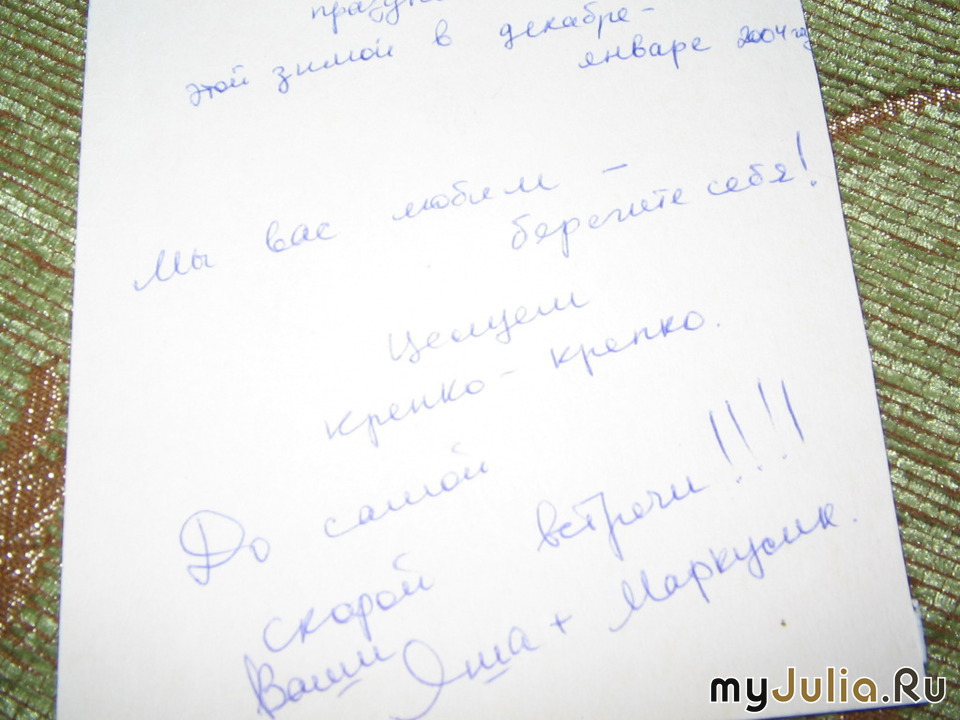 этой зимой в декабре-
январе 2004 г
Мы вас любим -
берегите себя!
Целуем
крепко - крепко.
До самой
скорой встречи!!!!
Ваши Яша + Маркусик.
myJulia.Ru